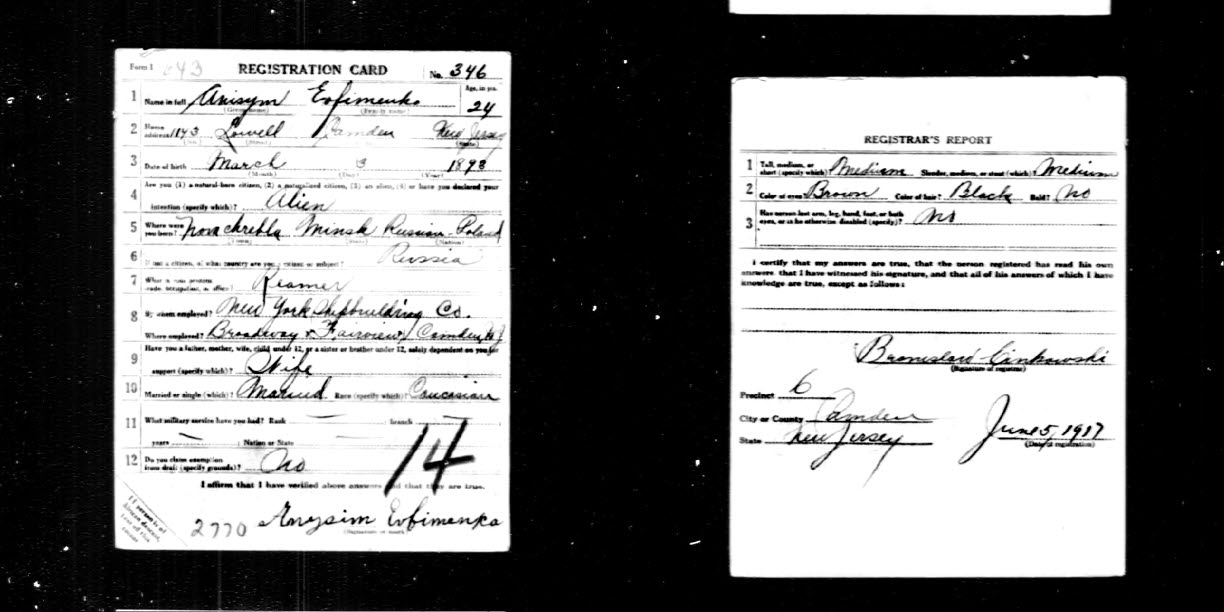 Form 1 643 REGISTRATION CARD No. 346
1 Name in full Anisym Evfimenko Age, in yrs. 24
(Given name) (Family name)
2 Home address 1143 Lowell Camden New Jersey
(No.) (Street) (State)
3 Date of birth March 3 1893
(Month) (Day) (Year)
Are you (1) a natural-born citizen, (2) a naturalized citizen, (3) an alien, (4) or have you declared your
4 intention (specify which)? Alien
5 Where were you born? Minsk Russian-Poland
(Town) (State) (Nation)
6 If not a citizen, of what country are you a citizen or subject? Russia
7 What is your present trade, occupation, or office? Reamer
8 By whom employed? New York Shipbuilding Co.
Where employed? Broadway & Fairview, Camden, N.J.
9 Have you a father, mother, wife, child under 12, or a sister or brother under 12, solely dependent on you for
support (specify which)? Wife
10 Married or single (which)? Married Race (specify which)? Caucasian
11 What military service have you had? Rank — branch —
years — ; Nation or State
12 Do you claim exemption from draft (specify grounds)? No
14
I affirm that I have verified above answers and that they are true.
2770 Anysim Evfimenko
(Signature or mark)
If person is of African descent, tear off this corner
REGISTRAR'S REPORT
1 Tall, medium, or short (specify which)? Medium Slender, medium, or stout (which)? Medium
2 Color of eyes? Brown Color of hair? Black Bald? No
3 Has person lost arm, leg, hand, foot, or both eyes, or is he otherwise disabled (specify)? No
I certify that my answers are true, that the person registered has read his own
answers, that I have witnessed his signature, and that all of his answers of which I have
knowledge are true, except as follows:
Bronislaw Cinkowski
(Signature of registrar)
Precinct 6
City or County Camden
State New Jersey
June 5, 1917
(Date of registration)